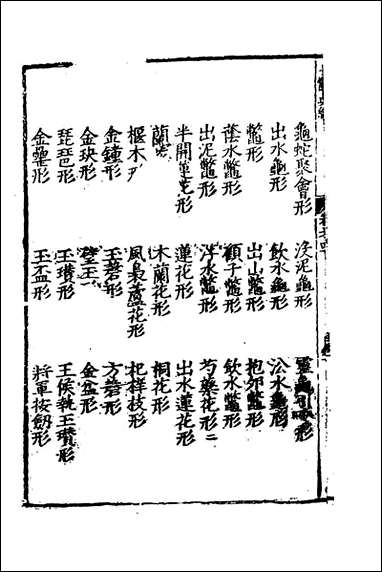 龜蛇聚會形 没泥龜形 靈龜形
出水龜形 飲水龜形 公水龜形
鼈形 出山鼈形 抱卵鼈形
蔭水鼈形 顧子鼈形 飲水鼈形
出泥鼈形 浮水鼈形 芍藥花形二
半開蓮花形 蓮花形 出水蓮花形
蘭 木蘭花形 桐花形
椻木 風梟蘆花形 杞梓枝形
金鐘形 玉磬形 方磬形
金玦形 璧玉 金盆形
琵琶形 玉瓚形 王侯執玉瓚形
金罍形 玉盃形 將軍按劔形